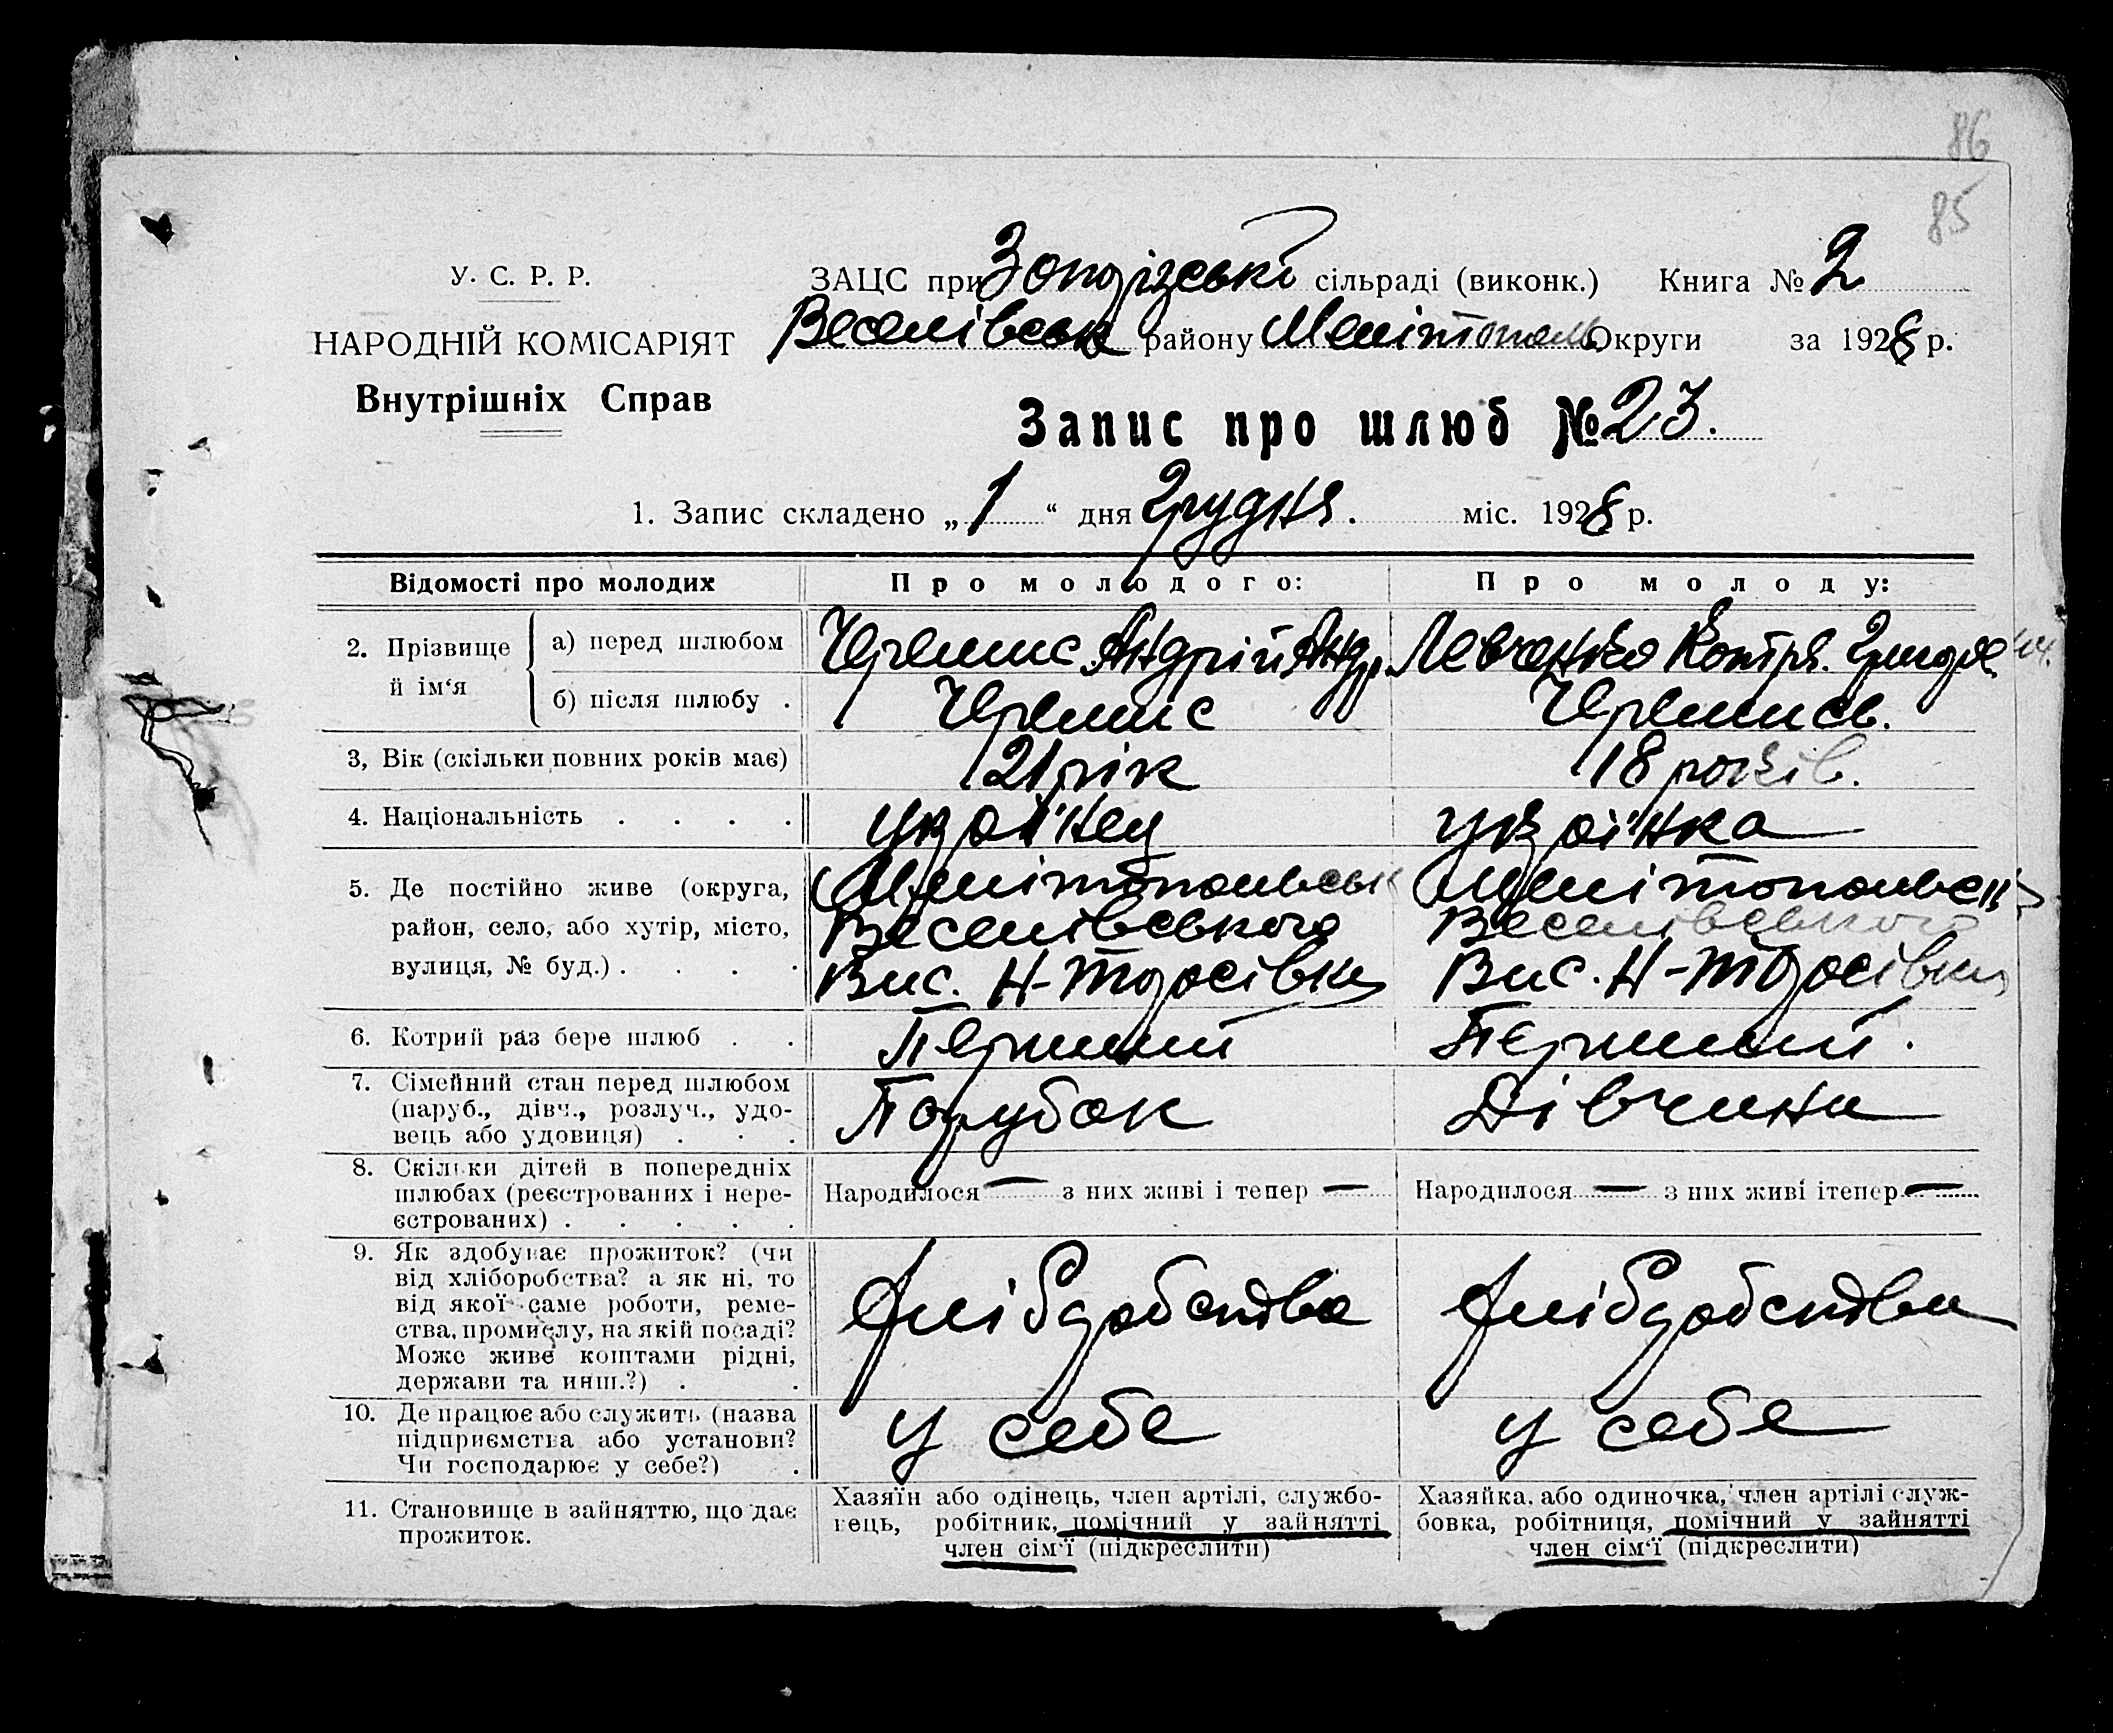 86
85
У. С. Р. Р.
НАРОДНІЙ КОМІСАРІЯТ
Внутрішніх Справ
ЗАЦС при сільраді (виконк.) Книга № 2
Веселівськ району Мелітополь Округи за 1928 р.
Запис про шлюб № 23.
1. Запис складено „ 1 “ дня Грудня. міс. 1928 р.
Відомості про молодих
Про молодого:
Про молоду:
2. Прізвище й ім‘я
а) перед шлюбом
Черемис Андрій Андр.
Левченко Григор
б) після шлюбу .
Черемис
Черемись.
3, Вік (скільки повних років має)
21 рік
18 років.
4. Національність . . . .
українец
украінка
5. Де постійно живе (округа,
район, село, або хутір, місто,
вулиця, № буд.) . . . .
Мелітопольськ
Веселівського
Вис. Н-Тарасівки
Веселівського
Вис. Н-Тарасівки
6. Котрий раз бере шлюб . .
Перший
Перший.
7. Сімейний стан перед шлюбом
(паруб., дівч., розлуч., удо-
вець або удовиця) . . .
Парубок
Дівчина
8. Скільки дітей в попередніх
шлюбах (реєстрованих і нере-
єстрованих) . . . . .
Народилося — з них живі і тепер —
Народилося — з них живі ітепер —
9. Як здобуває прожиток? (чи
від хліборобства? а як ні, то
від якої саме роботи, реме-
ства, промислу, на якій посаді?
Може живе коштами рідні,
держави та инш.?) . .
хлібдобства
хлібдобства
10. Де працює або служить (назва
підприємства або установи?
Чи господарює у себе?) .
у себе
у себе
11. Становище в зайняттю, що дає
прожиток.
Хазяїн або одінець, член артілі, службо-
вець, робітник, помічний у зайнятті
член сім‘ї (підкреслити)
Хазяйка, або одиночка, член артілі служ-
бовка, робітниця, помічний у зайнятті
член сім‘ї (підкреслити)